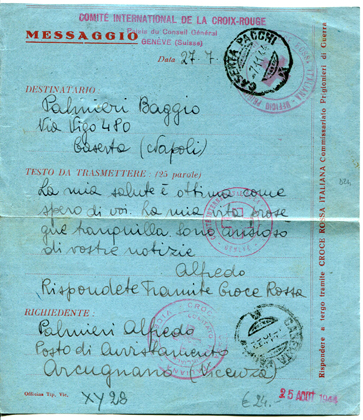 COMITÉ INTERNATIONAL DE LA CROIX-ROUGE
Palais du Conseil Général
GENÈVE (Suisse)
MESSAGGIO
Data 27.7.
CASERTA PACCHI
DESTINATARIO
Palmieri Baggio
Via Vigo 480
Caserta (Napoli)
TESTO DA TRASMETTERE (25 parole)
La mia salute è ottima come
spero di voi. La mia vita prose
gue tranquilla. Sono ansioso
di vostre notizie
Alfredo
Rispondete Tramite Croce Rossa
RICHIEDENTE:
Palmieri Alfredo
Posto di Avvistamento
Arcugnano (Vicenza)
Officina Tip. Vic.
XY 28
€ 24.
25 AOUT 1944
Rispondere a tergo tramite CROCE ROSSA ITALIANA Commissariato Prigionieri di Guerra